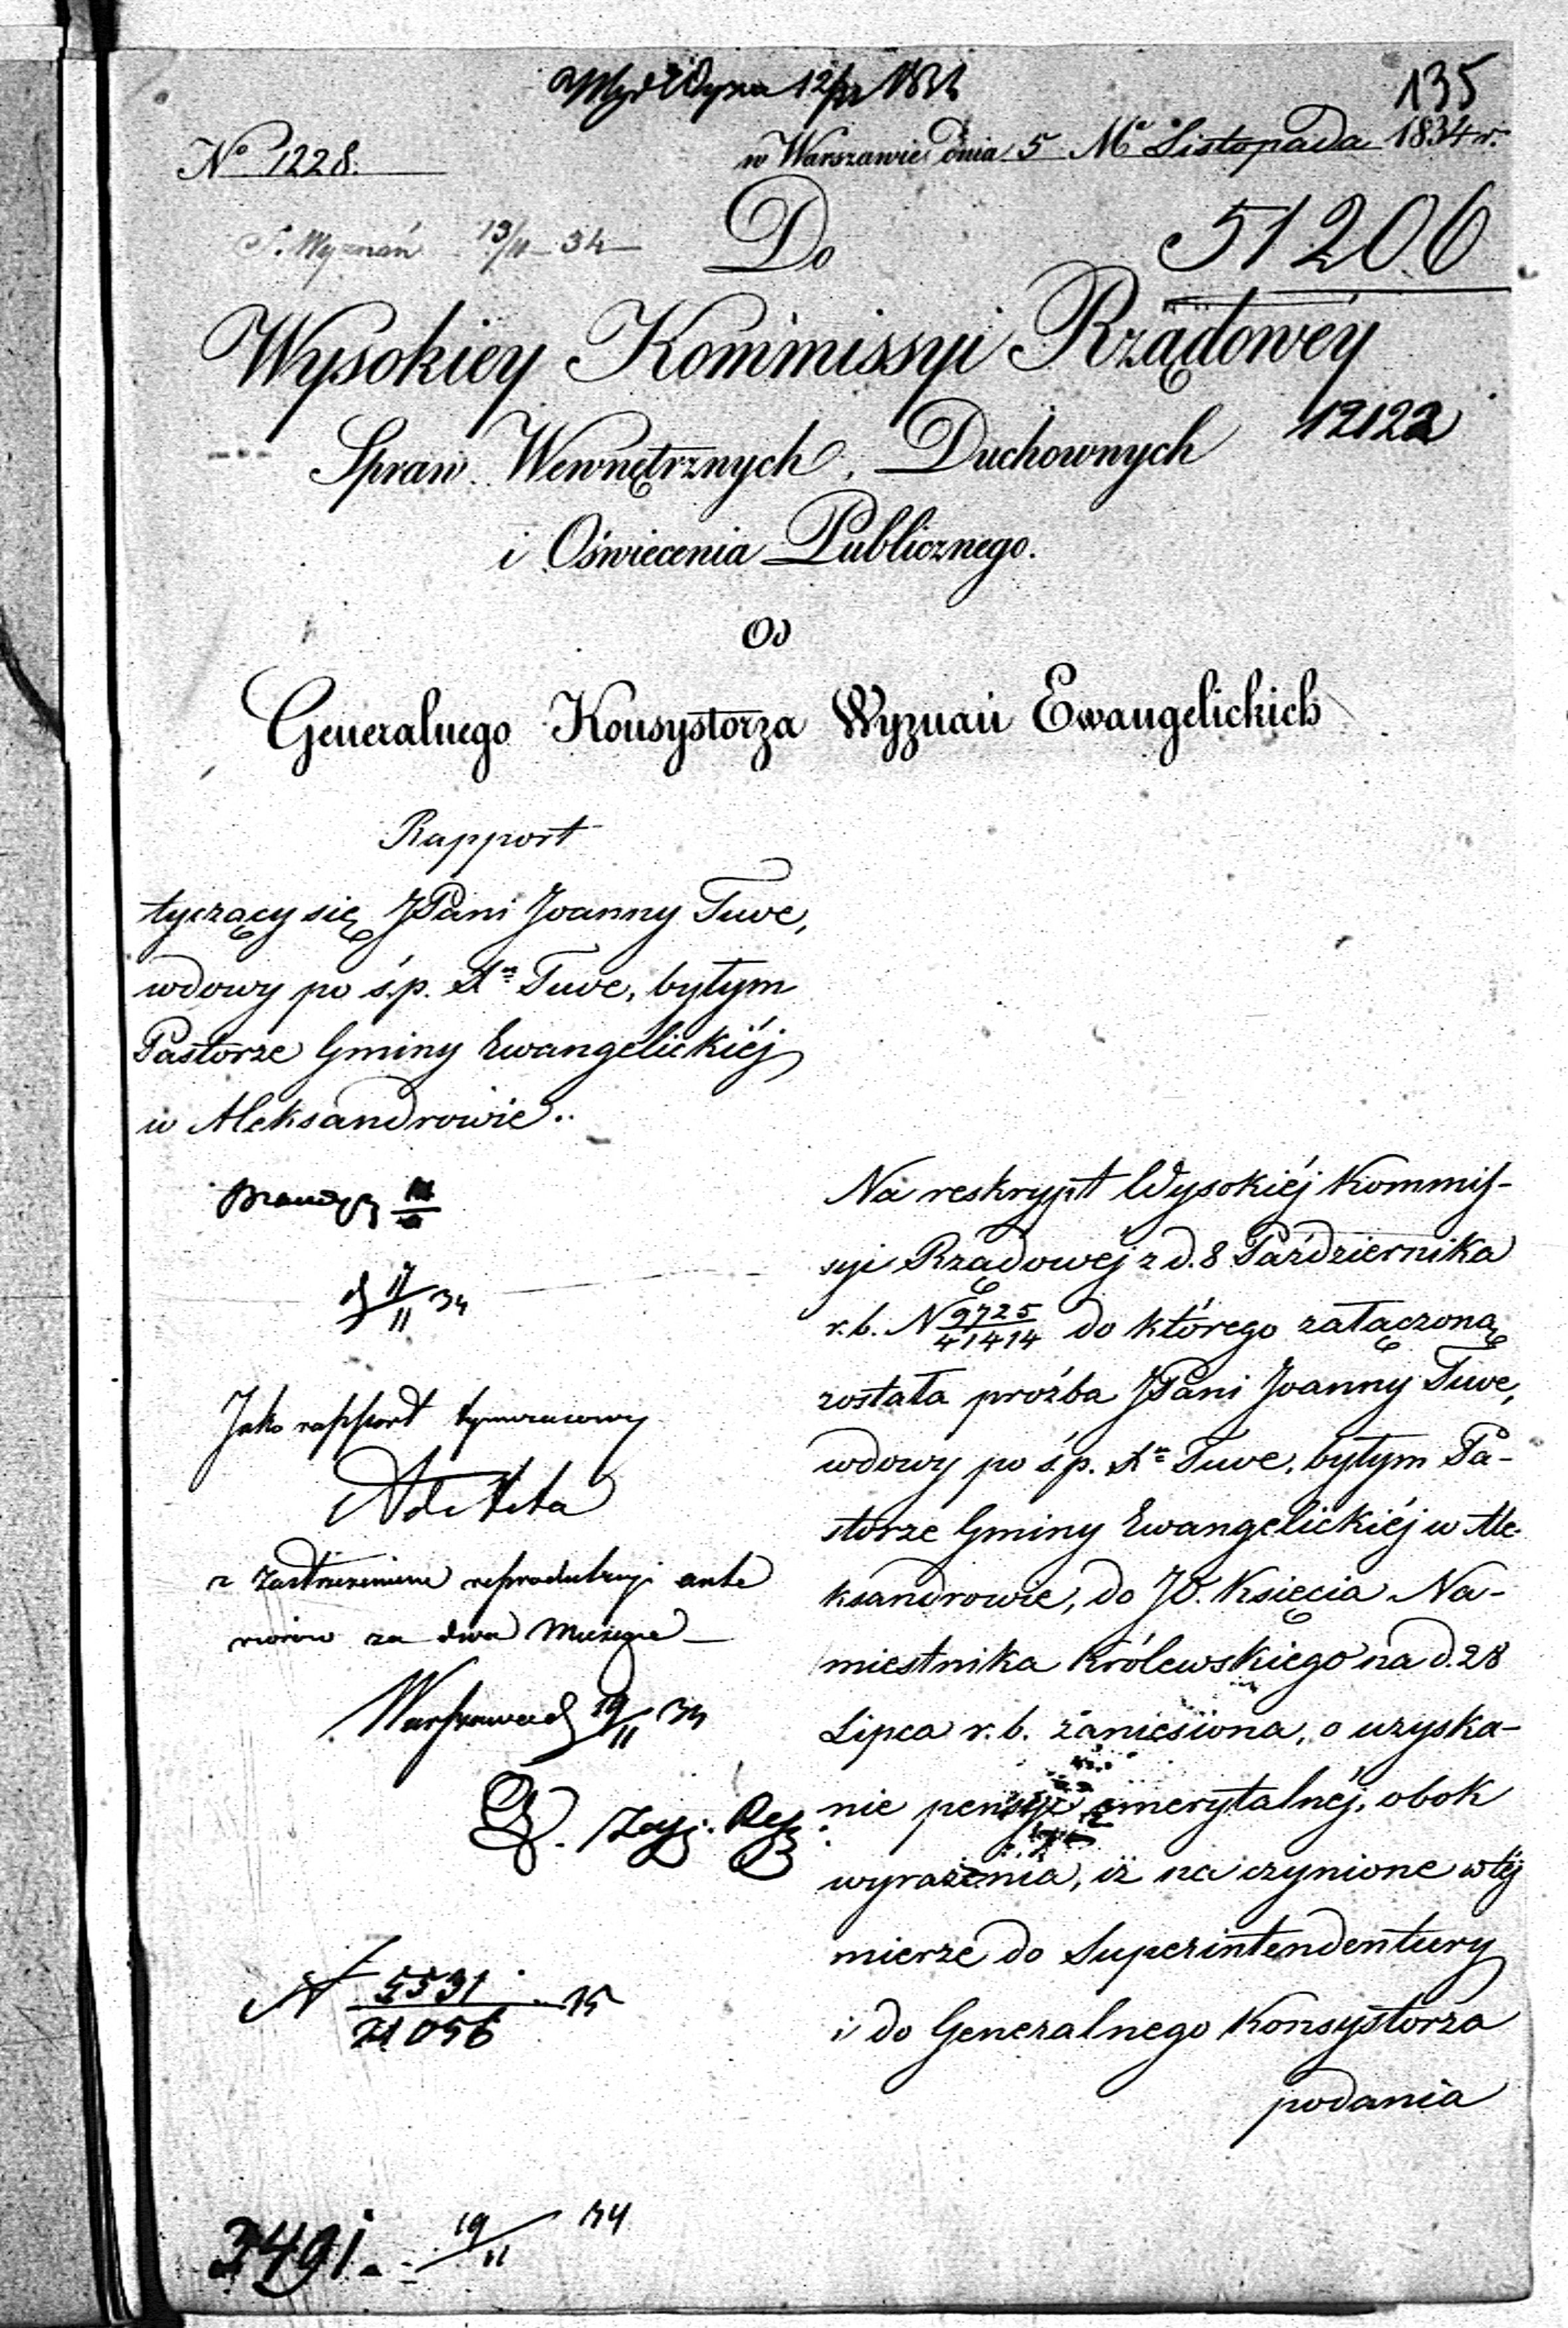 135
No 1228.
w Warszawie dnia 5 Mca Listopada 1834 r.
Wyznań 13/11 34
Do
51206
Wysokiey Kommissyi Rządowéy
12122
Spraw Wewnętrznych, Duchownych
i Oświecenia Publicznego.
Od
Generalnego Konsystorza Wyznań Ewangelickich
Rapport
tyczący się JPani Joanny Tuve,
wdowy po ś.p. Xn Tuve, byłym
Pastorze Gminy Ewangelickiéj
w Aleksandrowie.
17/11 34
Jako rapport tymczasowy
Ad Acta
z zastrzeżeniem reprodukcyi
za dwa Miesiące
Warszawa d 19/11 34
N 5531/21056 35
3491. 19/11 34
Na reskrypt Wysokiéj Kommis-
syi Rządowéj z d. 8 Października
r. b. N 9725/41414 do którego załączoną
została prośba JPani Joanny Tuve,
wdowy po ś.p. Xn Tuve, byłym Pa-
storze Gminy Ewangelickiéj w Ale-
ksandrowie, do JO. Księcia Na-
miestnika Królewskiego na d. 28
Lipca r. b. zaniesiona, o uzyska-
nie pensyi emerytalnéj, obok
wyrażenia, iż na czynione w téj
mierze do Superintendentury
i do Generalnego Konsystorza
podania